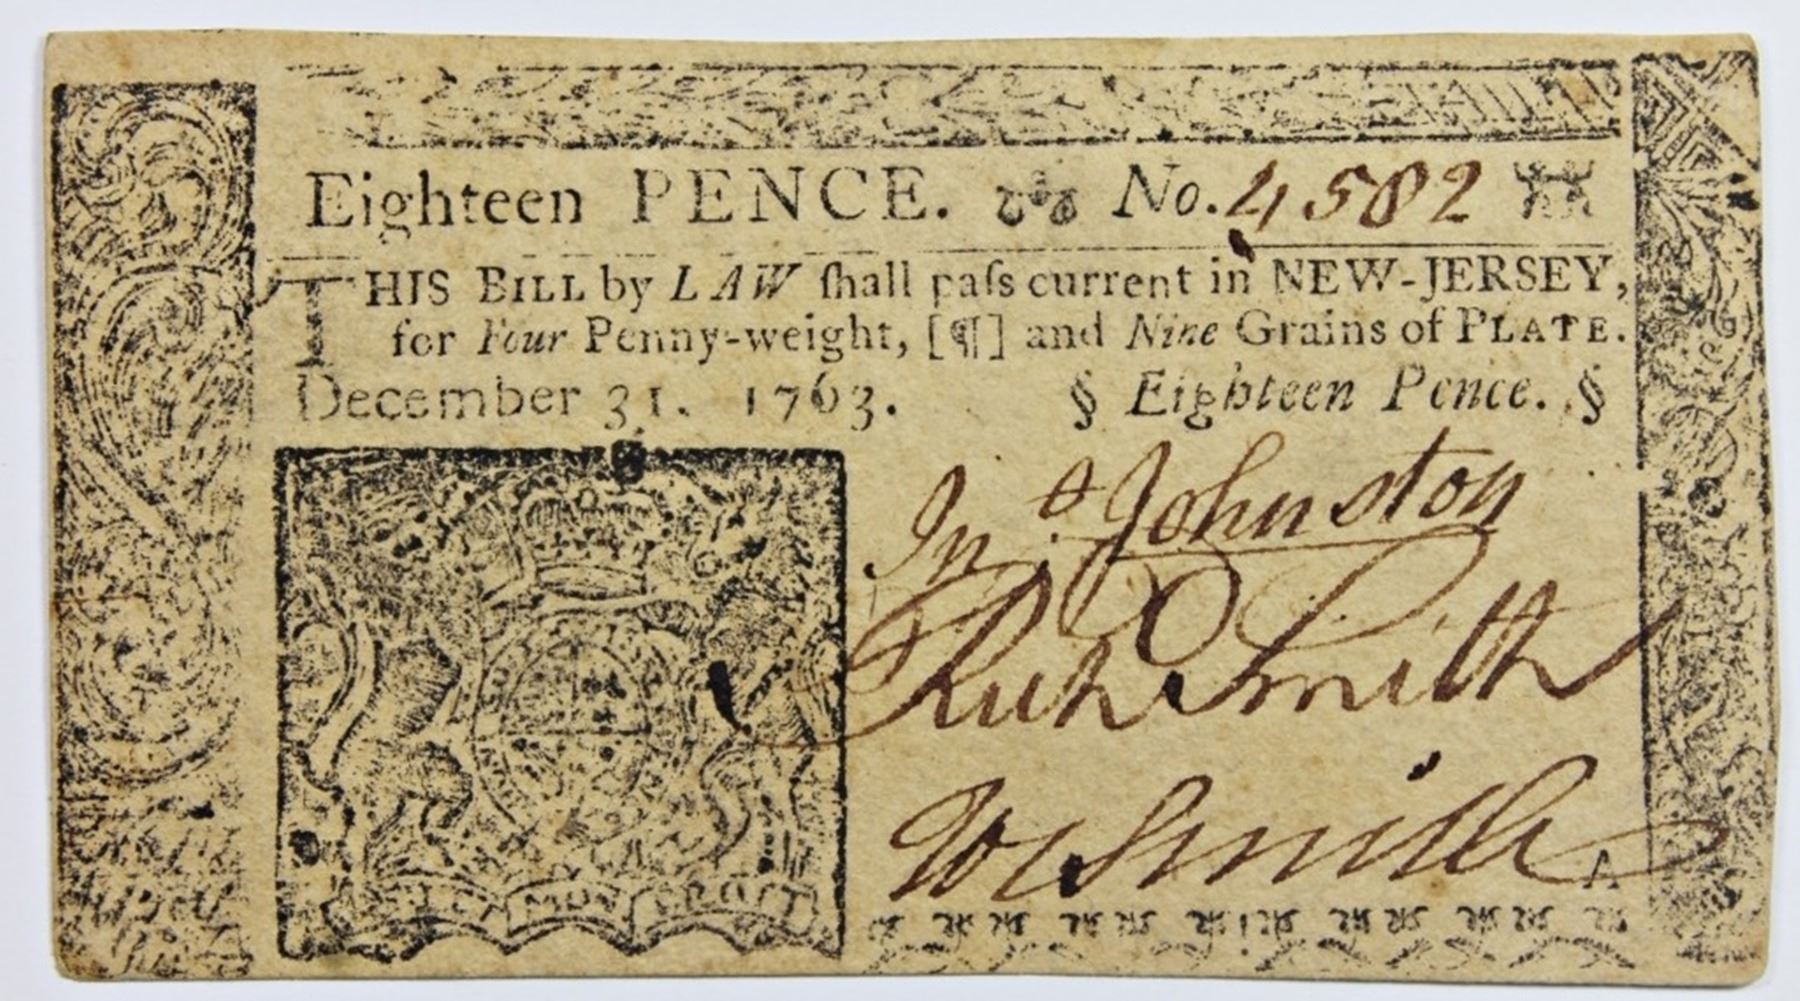 Eighteen PENCE. No. 4582
THIS BILL by LAW ſhall paſs current in NEW-JERSEY,
for Four Penny-weight, [¶] and Nine Grains of PLATE.
December 31. 1763. § Eighteen Pence. §
Jnº Johnston
Richd Smith
Wm Smith
ET MON DROIT